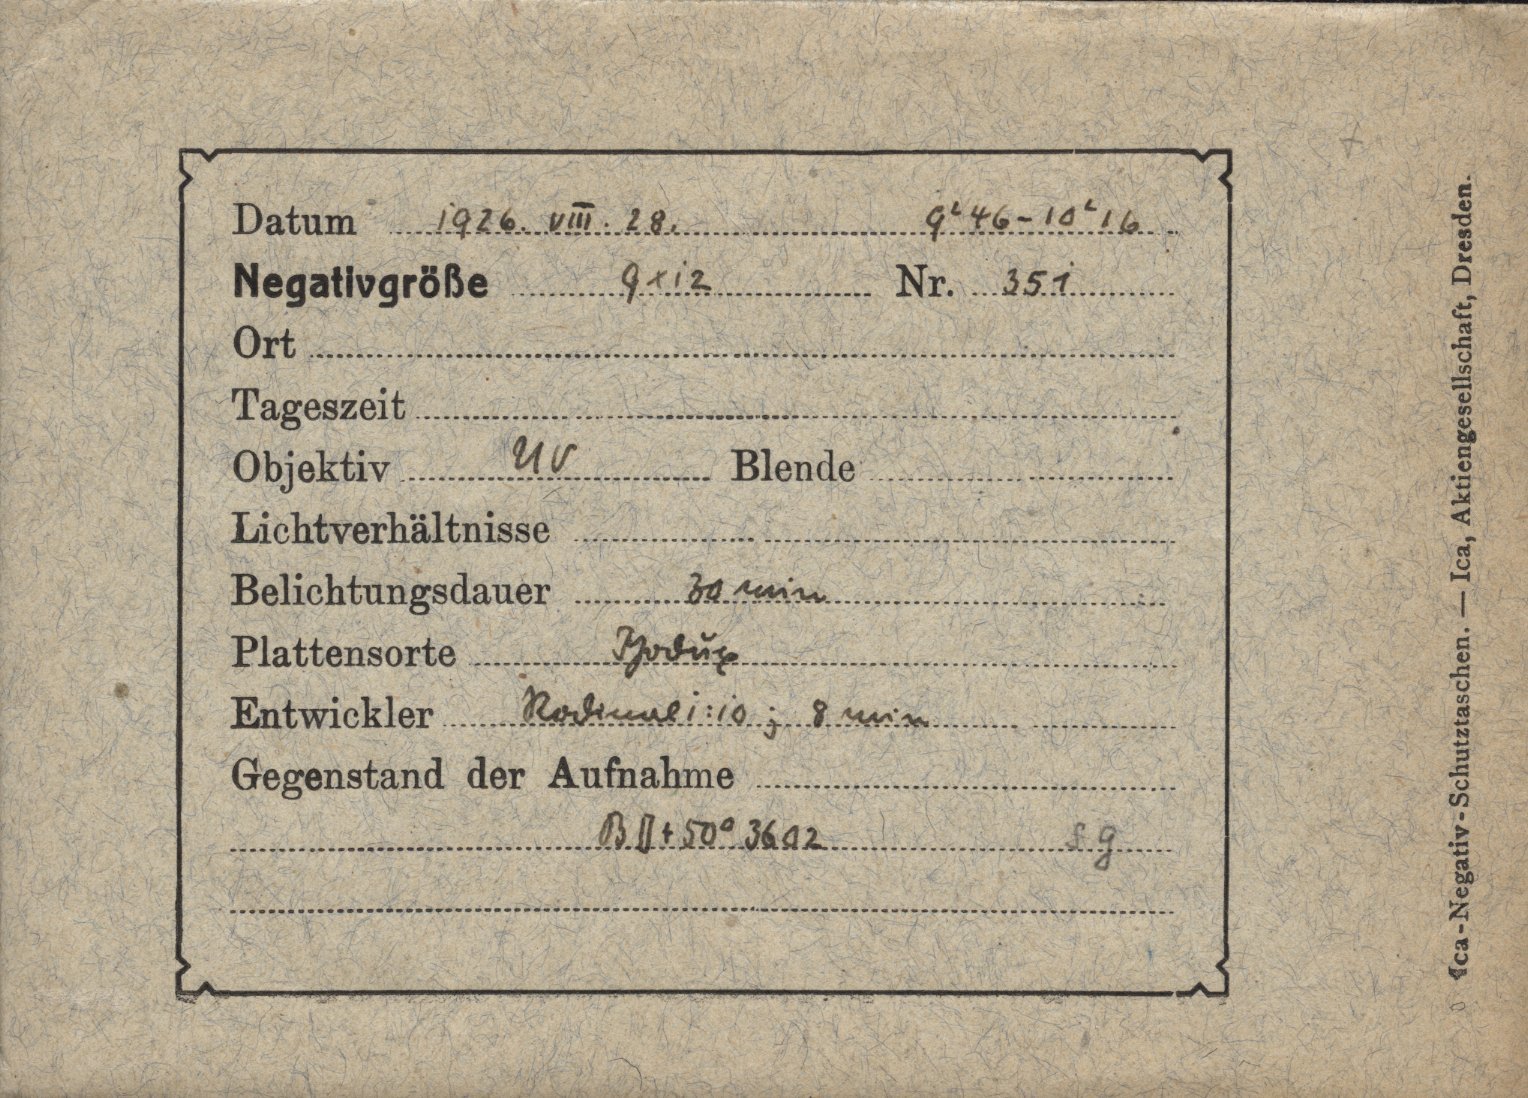 Datum 1926. VIII. 28. 9ʰ46-10ʰ16
Negativgröße 9x12 Nr. 351
Ort
Tageszeit
Objektiv UV Blende
Lichtverhältnisse
Belichtungsdauer 30 min
Plattensorte
Entwickler Rodinal 1:10; 8 min
Gegenstand der Aufnahme
BD+50° 3602 sg
Ica-Negativ-Schutztaschen. — Ica, Aktiengesellschaft, Dresden.